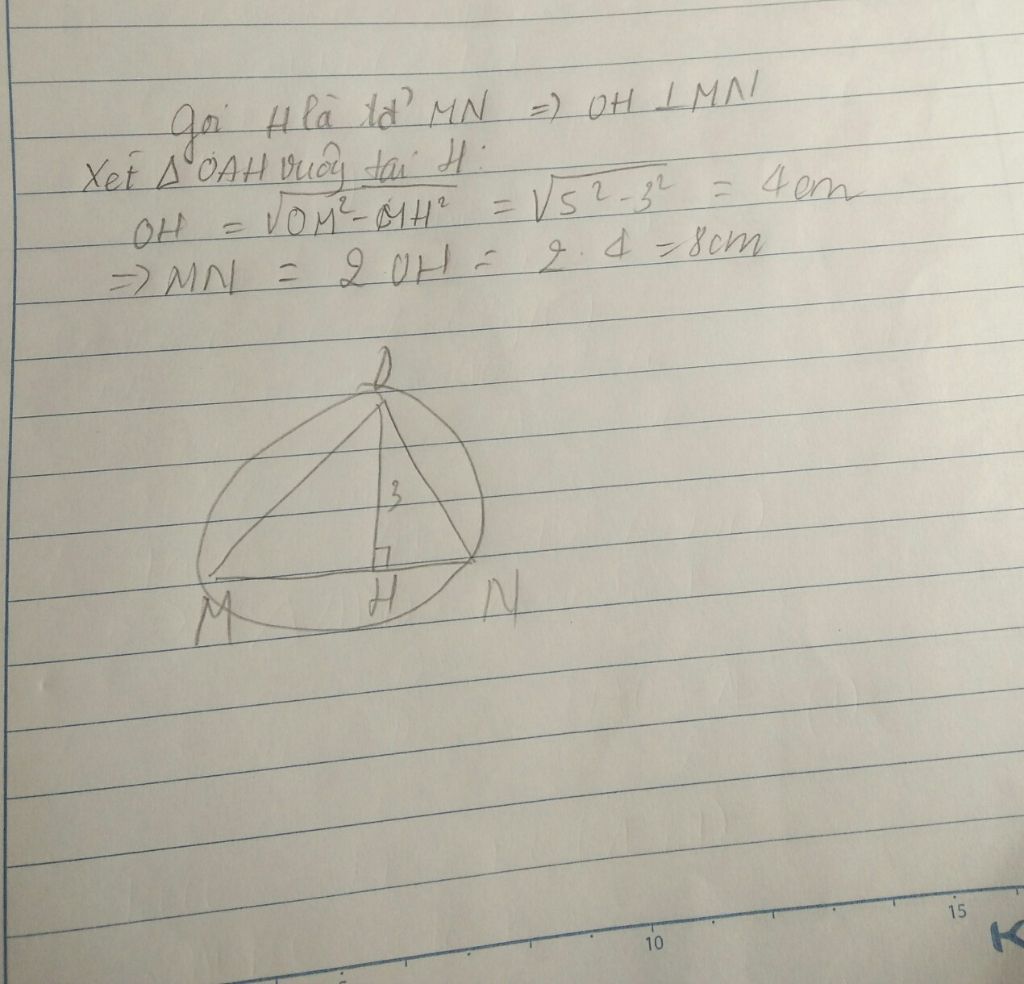 Gọi H là tđ MN => OH ⊥ MN
Xét Δ OAH vuông tại H:
OH = √OM² - MH² = √5² - 3² = 4cm
=> MN = 2 OH = 2 . 4 = 8cm
O
3
M H N
10 15
K